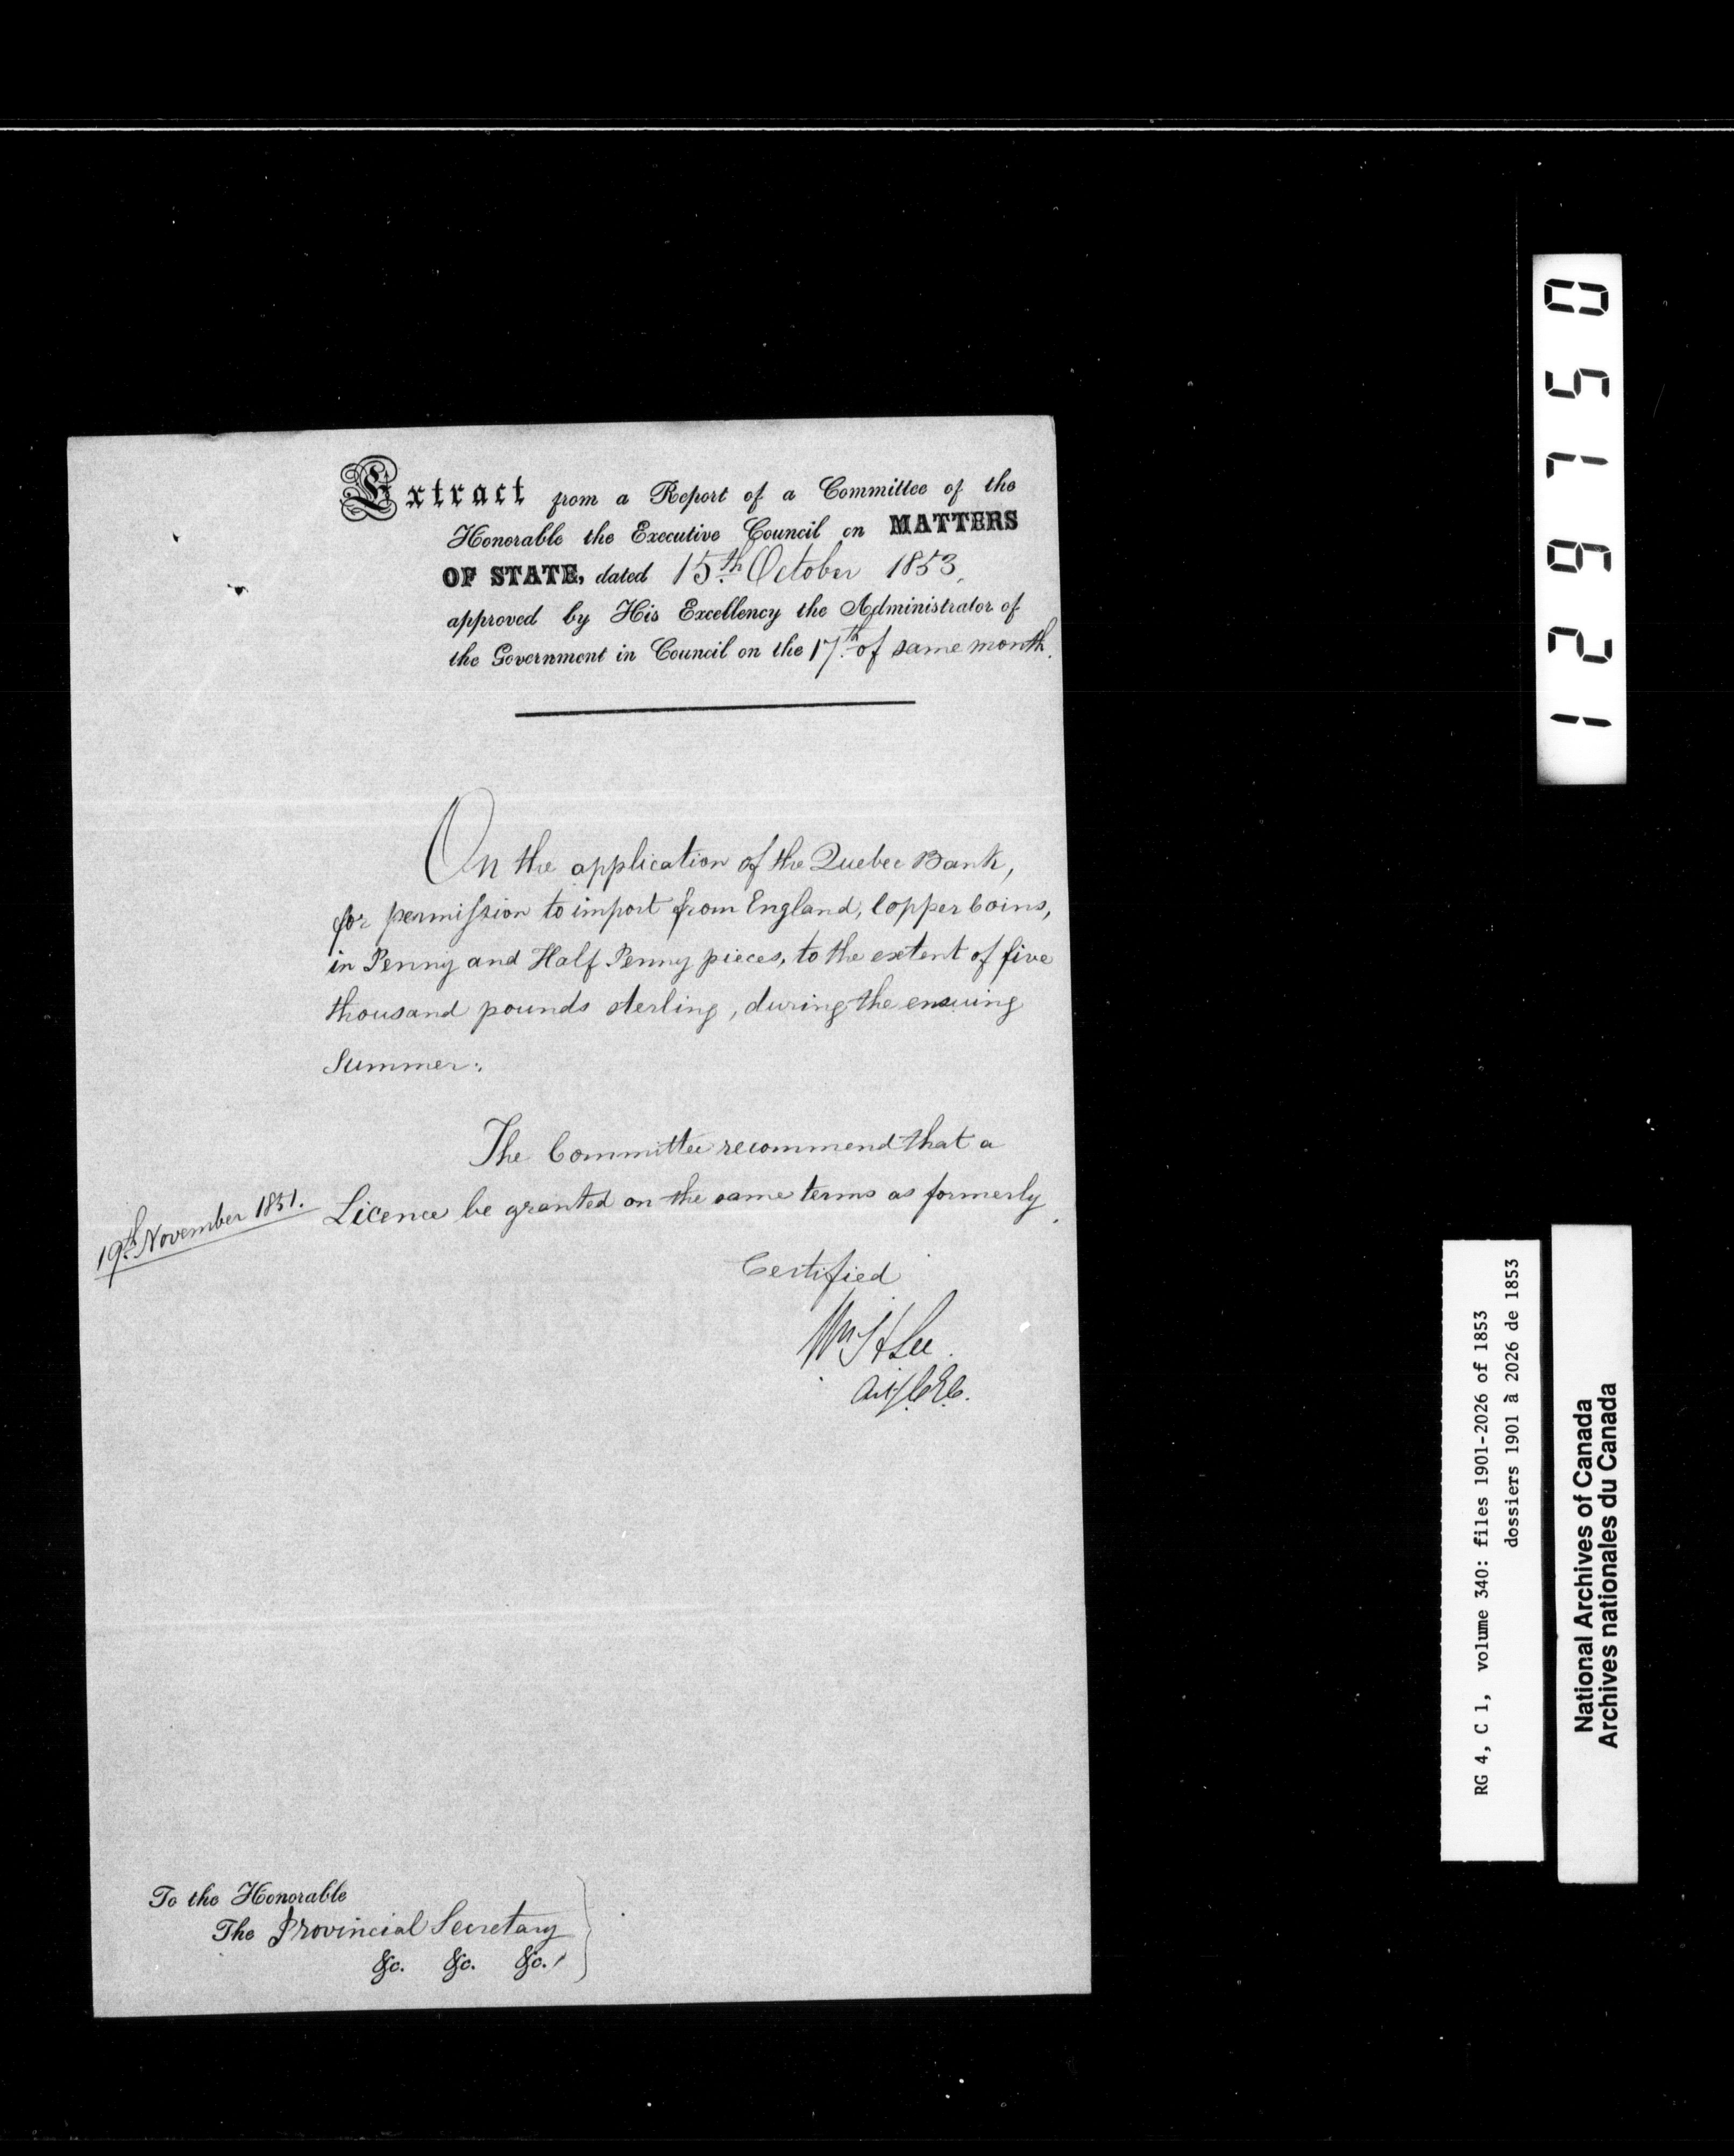 Extract from a Report of a Committee of the
Honorable the Executive Council on MATTERS
OF STATE, dated 15th October 1853,
approved by His Excellency the Administrator of
the Government in Council on the 17th of same month.
On the application of the Quebec Bank,
for permission to import from England, Copper Coins,
in Penny and Half Penny pieces, to the extent of five
thousand pounds sterling, during the ensuing
Summer:
The Committee recommend that a
19th November 1851.
Licence be granted on the same terms as formerly.
Certified
Wm H Lee
To the Honorable
The Provincial Secretary
&c. &c. &c.
129750
RG 4, C 1, volume 340: files 1901-2026 of 1853
dossiers 1901 à 2026 de 1853
National Archives of Canada
Archives nationales du Canada